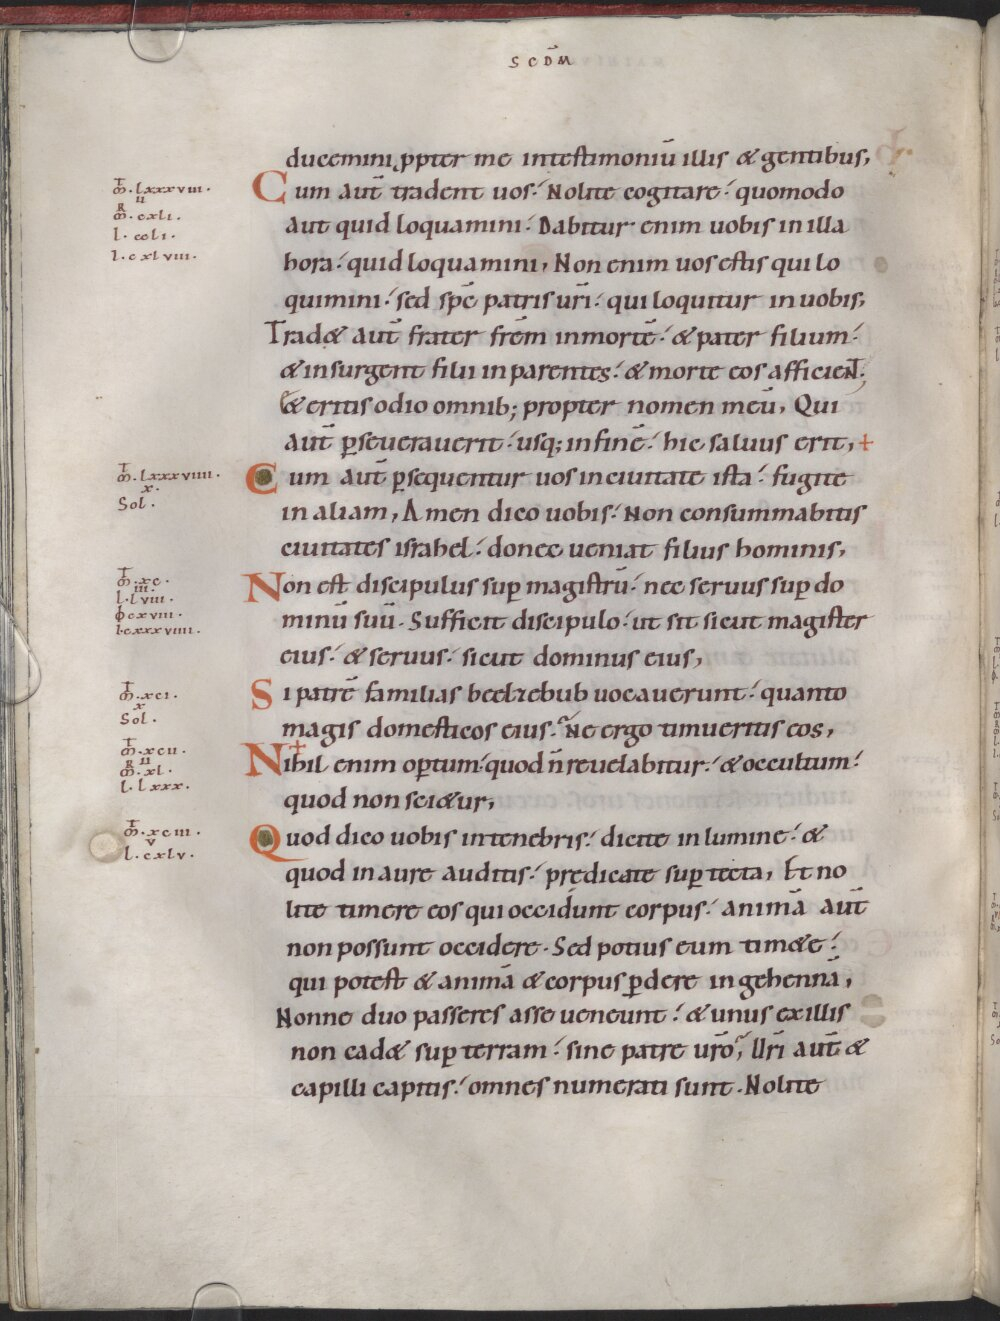 SCDM̄
ducemini ꝓpter me intestimoniū illis & gentibus,
m̄. lxxxviii.
Cum aut̄ tradent uos. Nolite cogitare. quomodo
R ii
m̄. cxli.
aut quid loquamini. Dabitur enim uobis in illa
l. ccli.
l. cxlviii.
hora. quid loquamini, Non enim uos estis qui lo
quimini. sed sp̄c patris ur̄i. qui loquitur in uobis,
Trad& aut̄ frater fr̄em inmortē. & pater filium.
& insurgent filii in parentes. & morte eos afficient.
& eritis odio omnib; propter nomen meū, Qui
aut̄ ꝑseuerauerit. usq; infinē. hic saluus erit, +
T
m̄. lxxxviiii.
x.
Cum aut̄ ꝑsequentur uos in ciuitate ista. fugite
Sol.
in aliam, Amen dico uobis. Non consummabitis
ciuitates israhel. donec ueniat filius hominis,
T
m̄. xc.
iii.
Non est discipulus suꝑ magistrū. nec seruus suꝑ do
l. lviii.
ϕcxviii.
minū suū. Sufficit discipulo. ut sit sicut magister
l. cxxxviiii.
eius. & seruus. sicut dominus eius,
T
m̄. xci.
x
Si patrē familias beelzebub uocauerunt. quanto
Sol.
magis domesticos eius. Ne ergo timueritis eos,
T
m̄. xcii.
R ii
Nihil enim oꝑtum. quod n̄ reuelabitur. & occultum.
m̄. xl.
l. lxxx.
quod non sci&ur,
T
m̄. xciii.
v
Quod dico uobis intenebris. dicite in lumine. &
l. cxlv.
quod in aure auditis. prędicate suꝑ tecta, Et no
lite timere eos qui occidunt corpus. animā aut̄
non possunt occidere. Sed potius eum tim&e.
qui potest & animā & corpus ꝑdere in gehennā,
Nonne duo passeres asse ueneunt. & unus ex illis
non cad& suꝑ terram. sine patre ur̄o, Ur̄i aut̄ &
capilli capitis. omnes numerati sunt. Nolite